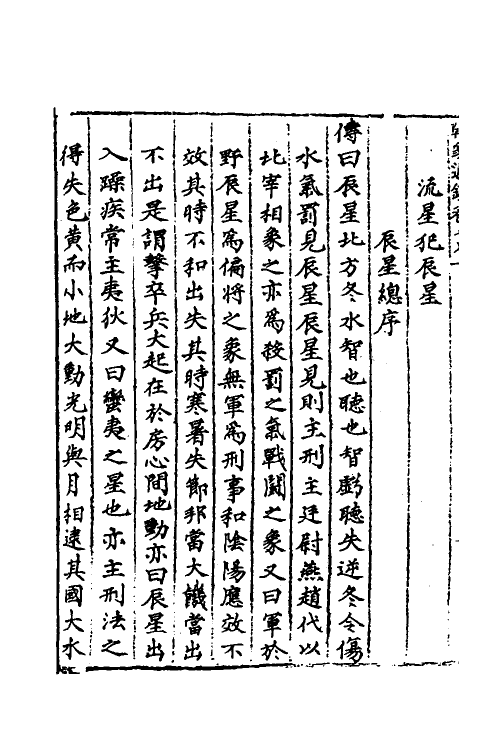 流星犯辰星
辰星總序
傳曰辰星北方冬水智也聽也智虧聽失逆冬令傷
水氣罰見辰星辰星見則主刑主廷尉燕趙代以
北宰相象之亦爲殺罰之氣戰鬪之象又曰軍於
野辰星爲偏將之象無軍爲刑事和陰陽應效不
效其時不和出失其時寒暑失節邦當大饑當出
不出是謂擊卒兵大起在於房心間地動亦曰辰星出
入躁疾常主夷狄又曰蠻夷之星也亦主刑法之
得失色黃而小地大動光明與月相逮其國大水